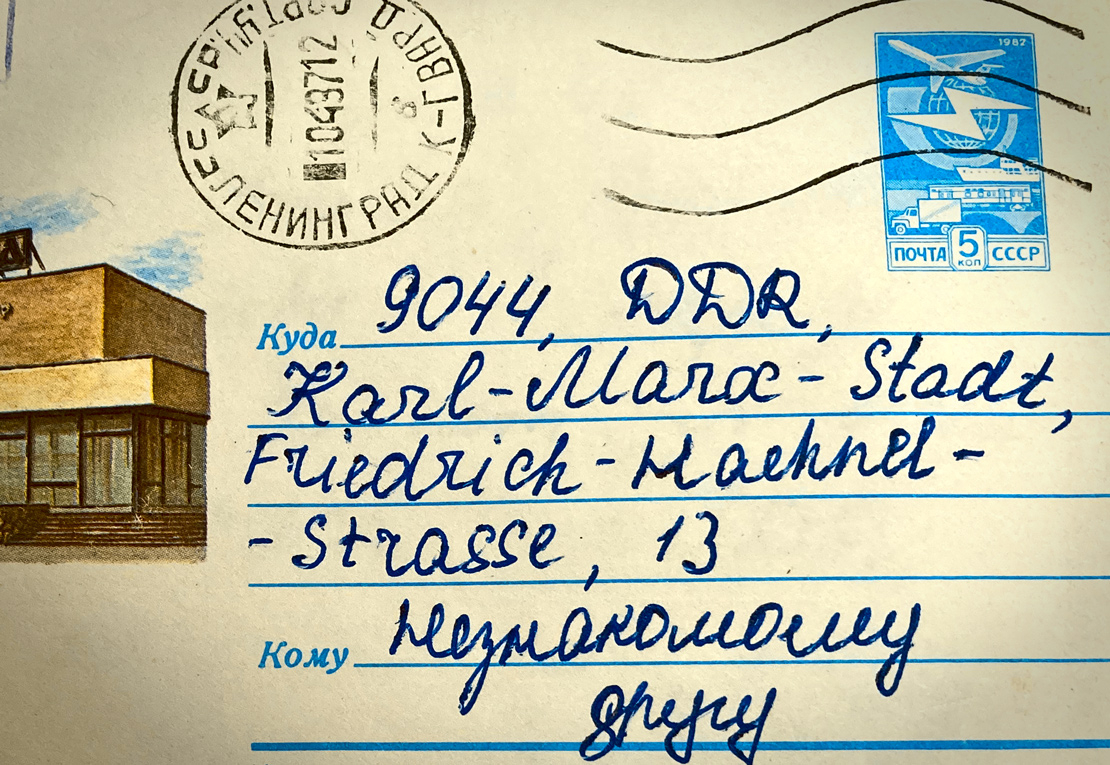 СССР
ЛЕНИНГРАД К-1
10 4 87 12
1982
ПОЧТА 5 КОП СССР
Куда 9044, DDR,
Karl-Marx-Stadt,
Friedrich-Haehnel-
-Strasse, 13
Кому Незнакомому
другу